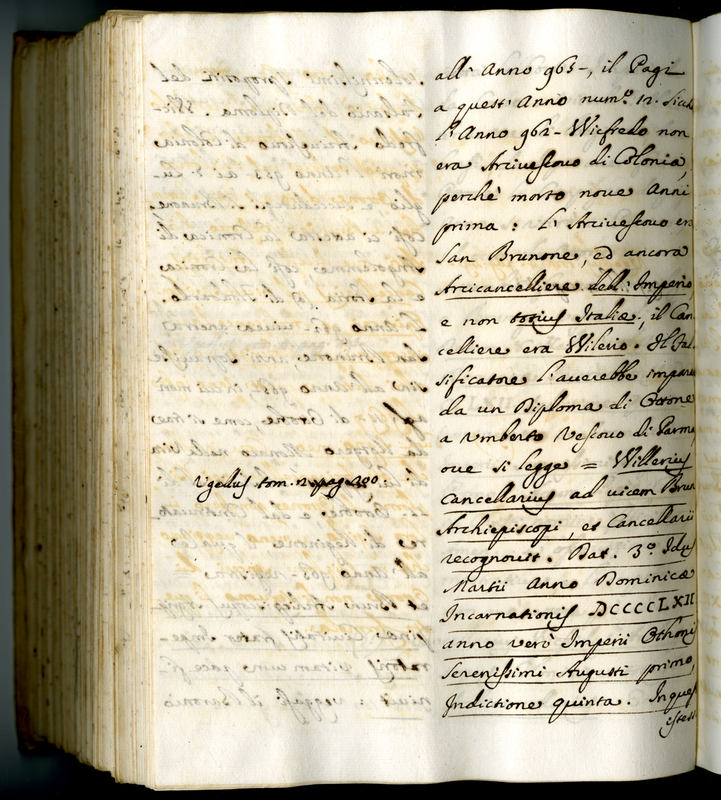 all' Anno 965-, il Pagi
a quest' Anno num.º 12. Sicche
l' Anno 962 - Wicfredo non
era Arcivescovo di Colonia,
perchè morto nove Anni
prima: L' Arcivescovo era
San Brunone, ed ancora
Arcicancelliere dell' Imperio
e non totius Italiæ, il Can
celliere era Wilerio. Il Fal
sificatore l' averebbe impara
da un Diploma di Ottone
a Umberto Vescovo di Parma
ove si legge = Willerius
Ugellius tom. 2 pag. 200.
Cancellarius ad vicem Brun
Archiepiscopi, et Cancellarii
recognovit. Dat. 3.º Idus
Martii Anno Dominicæ
Incarnationis DCCCCLXII
anno verò Imperii Othonis
Serenissimi Augusti primo,
Indictione quinta. In ques